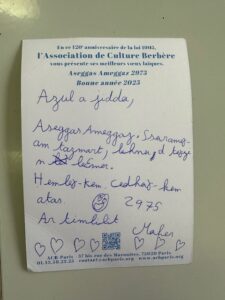 En ce 120e anniversaire de la loi 1905,
l'Association de Culture Berbère
vous présente ses meilleurs voeux laïques.
Aseggas Ameggaz 2975
Bonne année 2025
Azul a jidda,
Aseggas Ameggaz. Ssarameɣ-
am tazmert, lehna, d
n leɛmer.
Hemleɣ-kem. Cedhaɣ-kem
atas. 2975
Ar timlilit
Maher
ACB Paris 37 bis rue des Maronites, 75020 Paris
01.43.58.23.25 contact@acbparis.org www.acbparis.org